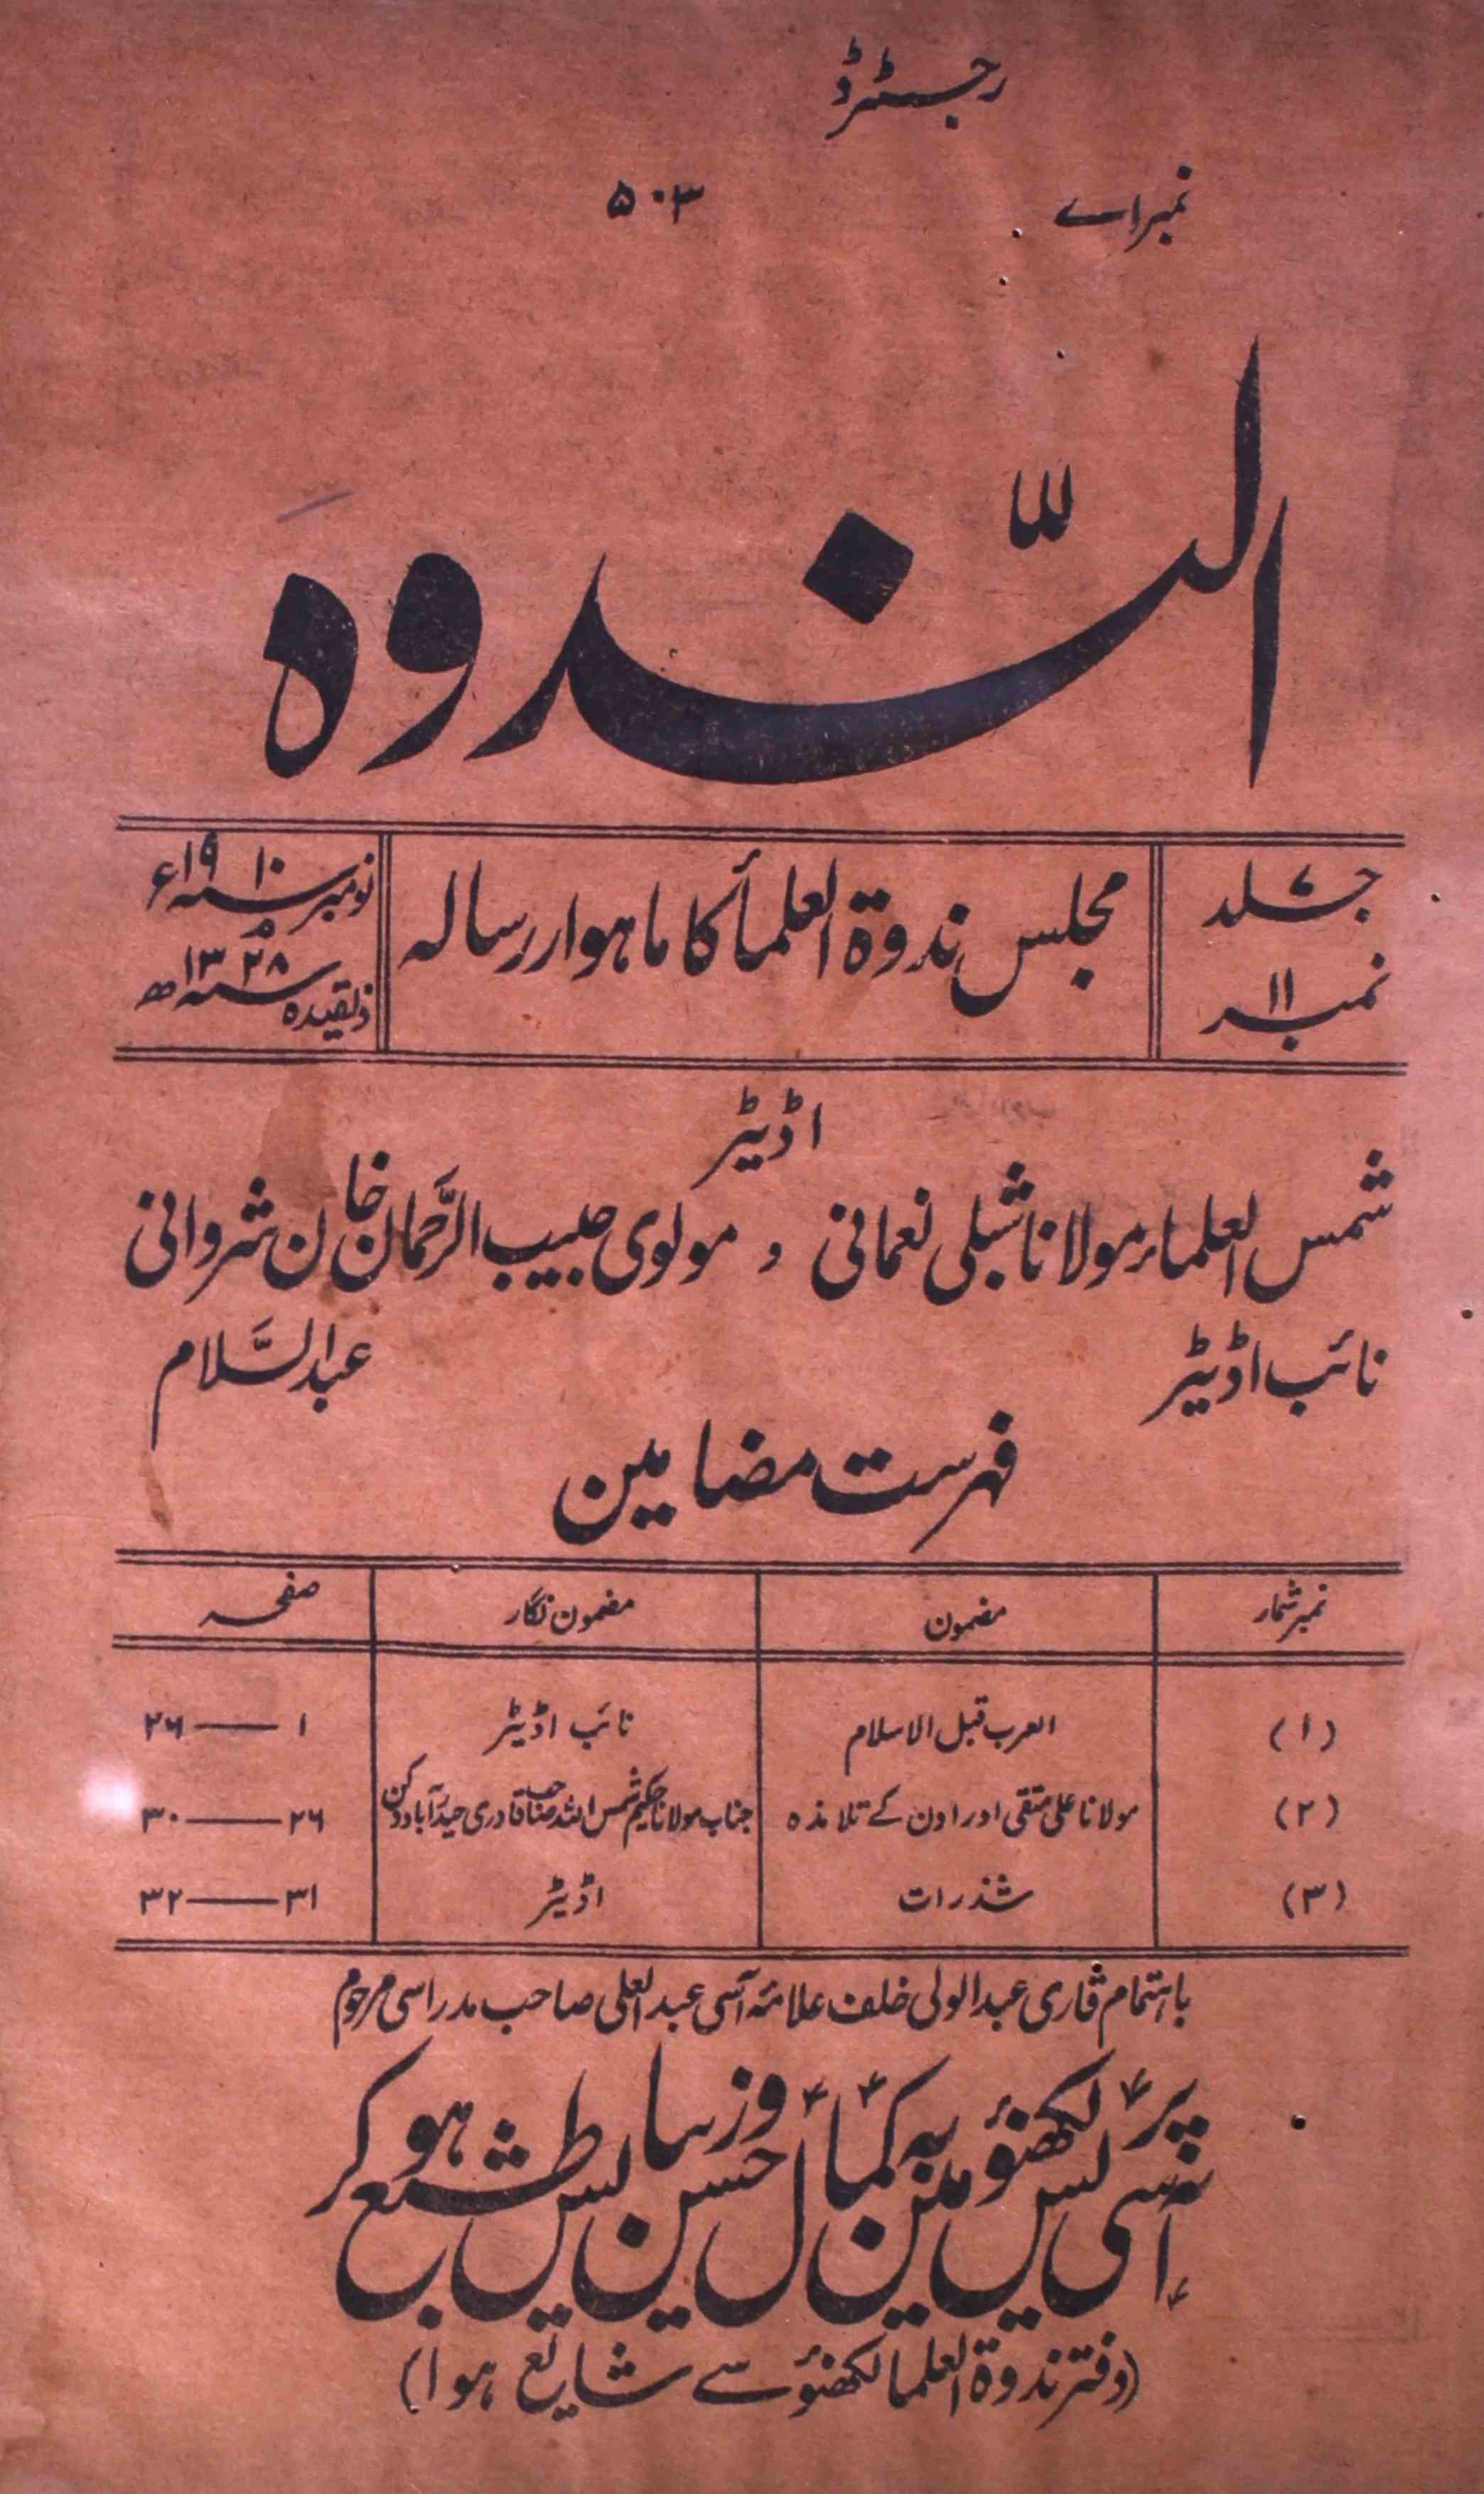 رجسٹرڈ
نمبر اے ۵۰۳
الندوہ
جلد ۷
نمبر ۱۱
مجلس ندوۃ العلماء کا ماہوار رسالہ
نومبر سنہ ۱۹۱۰ء
ذلقیدہ سنہ ۱۳۲۸ھ
اڈیٹر
شمس العلماء مولانا شبلی نعمانی و مولوی حبیب الرحمان خان شروانی
نائب اڈیٹر عبدالسلام
فہرست مضامین
نمبر شمار مضمون مضمون نگار صفحہ
(۱) العرب قبل الاسلام نائب اڈیٹر ۱ — ۲۶
(۲) مولانا علی متقی اور اون کے تلامذہ جناب مولانا حکیم شمس اللہ صاحب قادری حیدرآباد دکن ۲۶ — ۳۰
(۳) شذرات اڈیٹر ۳۱ — ۳۲
باہتمام قاری عبدالولی خلف علامہ آسی عبدالعلی صاحب مدراسی مرحوم
آسی پریس لکھنؤ میں بہ کمال حسن و زیبایش طبع ہو کر
(دفتر ندوۃ العلما لکھنؤ سے شایع ہوا)